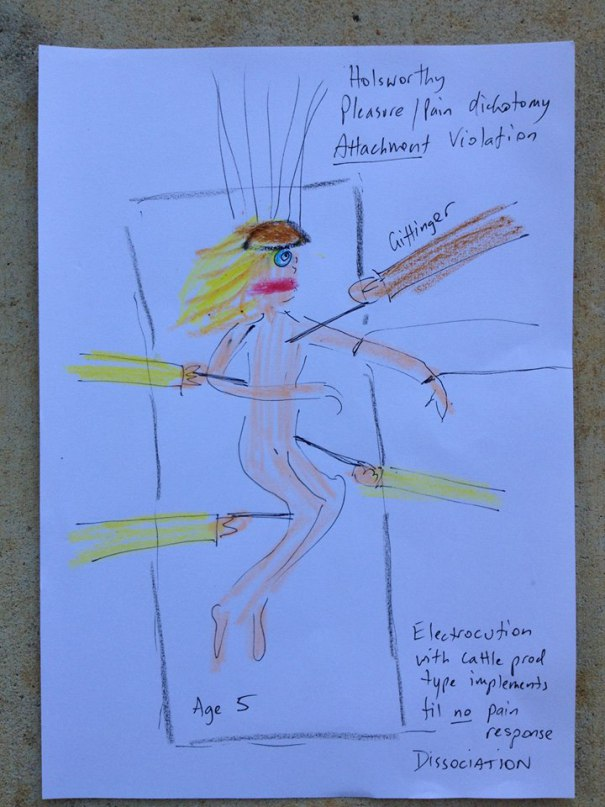 Holsworthy
Pleasure/Pain dichotomy
Attachment Violation
Gittinger
Age 5
Electrocution
with cattle prod
type implements
til no pain
response
DISSOCIATION